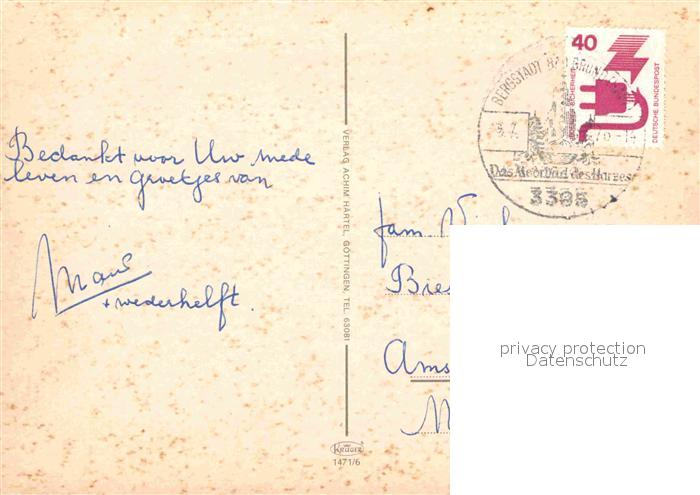 Bedankt voor Uw mede
leven en groetjes van
+ wederhelft.
VERLAG ACHIM HÄRTEL, GÖTTINGEN, TEL. 63081
KRÜGER
1471/6
40
DEUTSCHE BUNDESPOST
BERGSTADT BAD GRUND
Das Moorbad des Harzes
3395
fam
Bies
Ams
privacy protection
Datenschutz